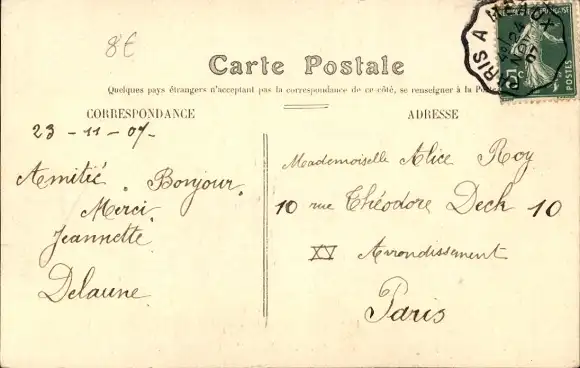 8€
Carte Postale
Quelques pays étrangers n'acceptant pas la correspondance de ce côté, se renseigner à la Poste
CORRESPONDANCE
23 - 11 - 07 -
Amitié. Bonjour.
Merci.
Jeannette
Delaune
ADRESSE
Mademoiselle Alice Roy
10 rue Théodore Deck 10
XV Arrondissement
Paris
PARIS A MEAUX
24
NOV
07
5c
POSTES